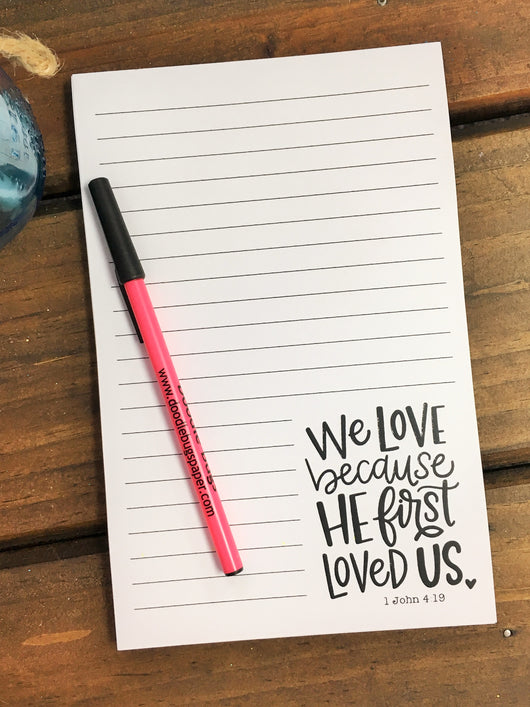 www.doodlebugspaper.com
We LOVE
because
HE first
LOVED US.
1 John 4:19